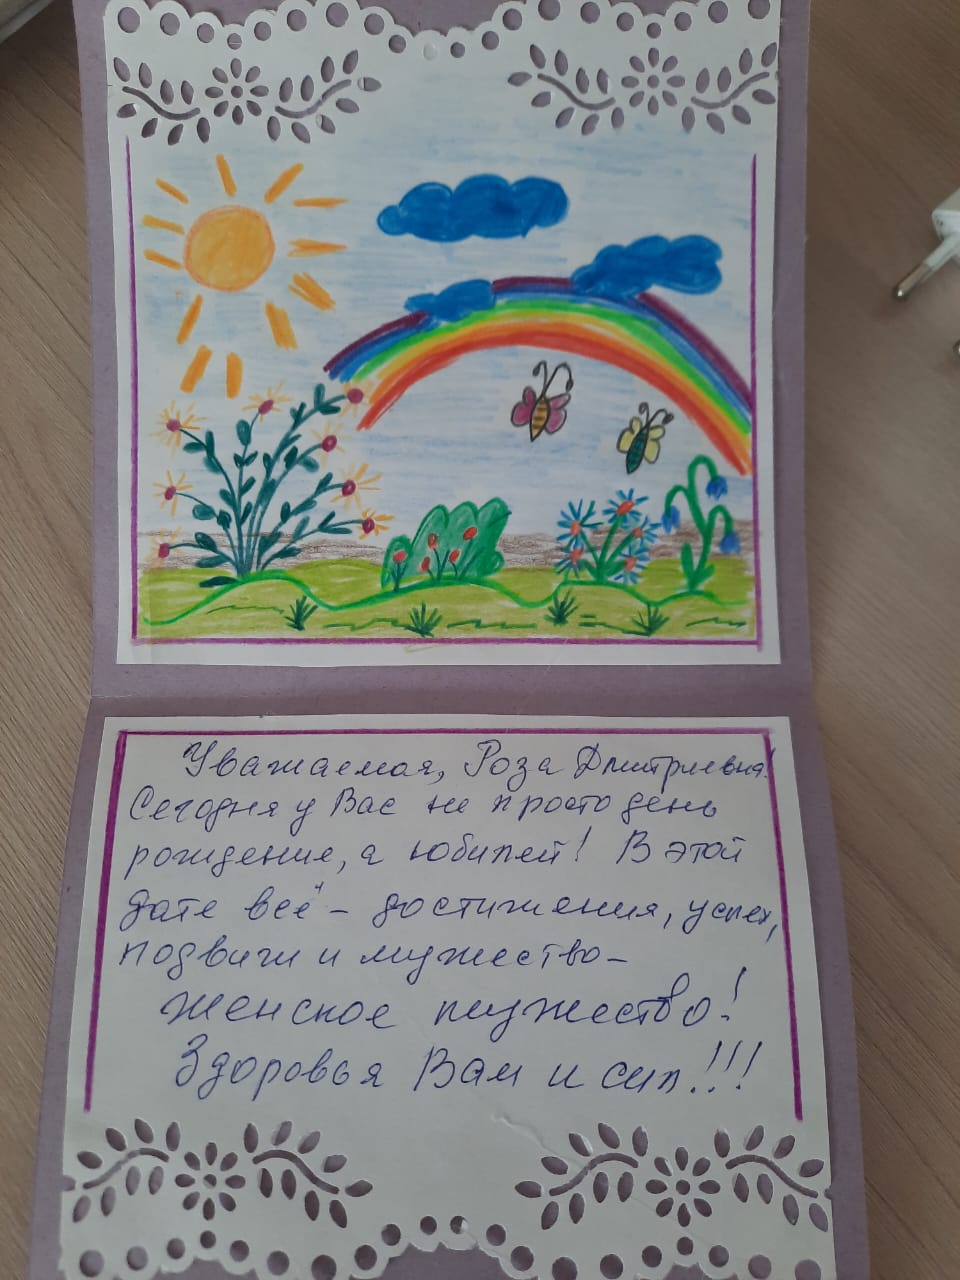 Уважаемая, Роза Дмитриевна!
Сегодня у Вас не просто день
рождение, а юбилей! В этой
дате всё – достижения, успех,
подвиги и мужество –
женское мужество!
Здоровья Вам и сил!!!